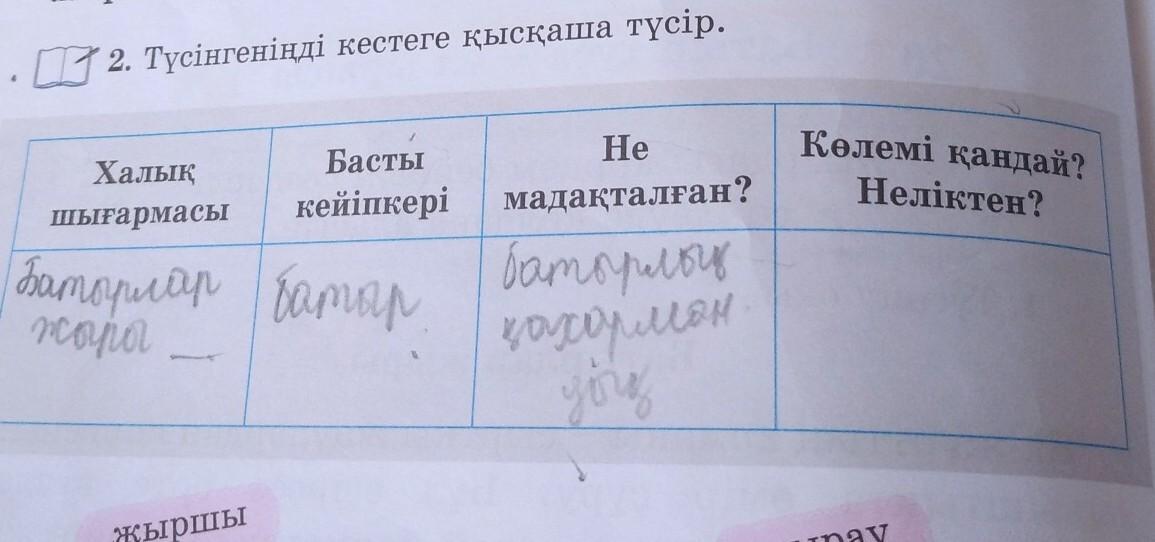 2. Түсінгеніңді кестеге қысқаша түсір.
Халық
шығармасы
Басты
кейіпкері
Не
мадақталған?
Көлемі қандай?
Неліктен?
Батырлар
жыры —
батыр
батырлық
қахарман
дық
жыршы